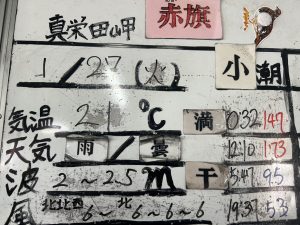 真栄田岬 赤旗
1/27(火) 小潮
気温 21℃ 満 0:32 147
天気 雨/曇 12:10 173
波 2~2.5m 干 5:47 95
風 北北西 6~ 北 6~6~6 19:37 53